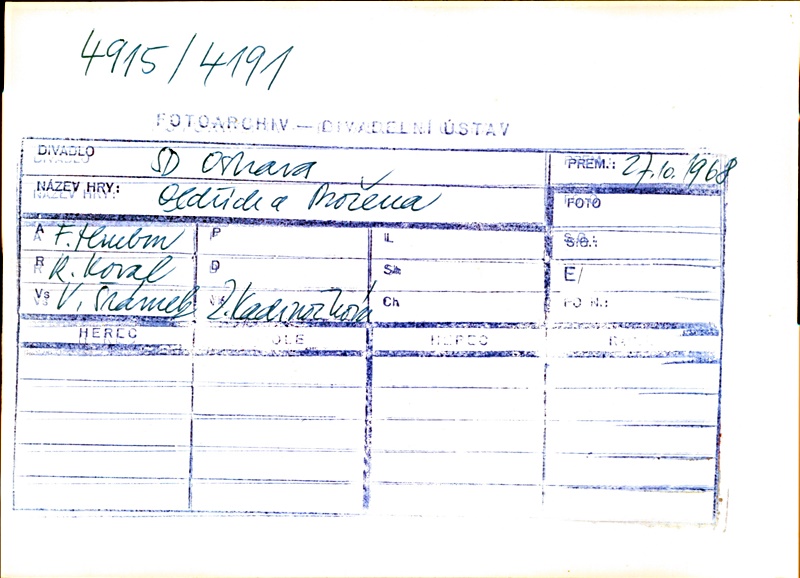 4915/4191
FOTOARCHIV — DIVADELNÍ ÚSTAV
DIVADLO SD Ostrava PREM.: 27.10.1968
NÁZEV HRY: Oldřich a Božena FOTO
A F. Hrubín P L S.O.:
R R. Koval D Sk E/
Vs V. Šrámek Z. Kadrnožková Ch FO N.:
HEREC OLE HEREC